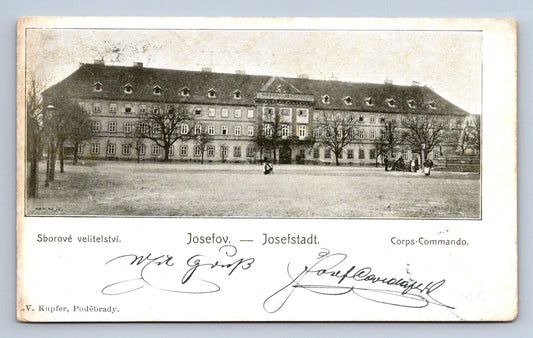 Sborové velitelství. Josefov. — Josefstadt. Corps-Commando.
Gruß Josef
V. Kupfer, Poděbrady.